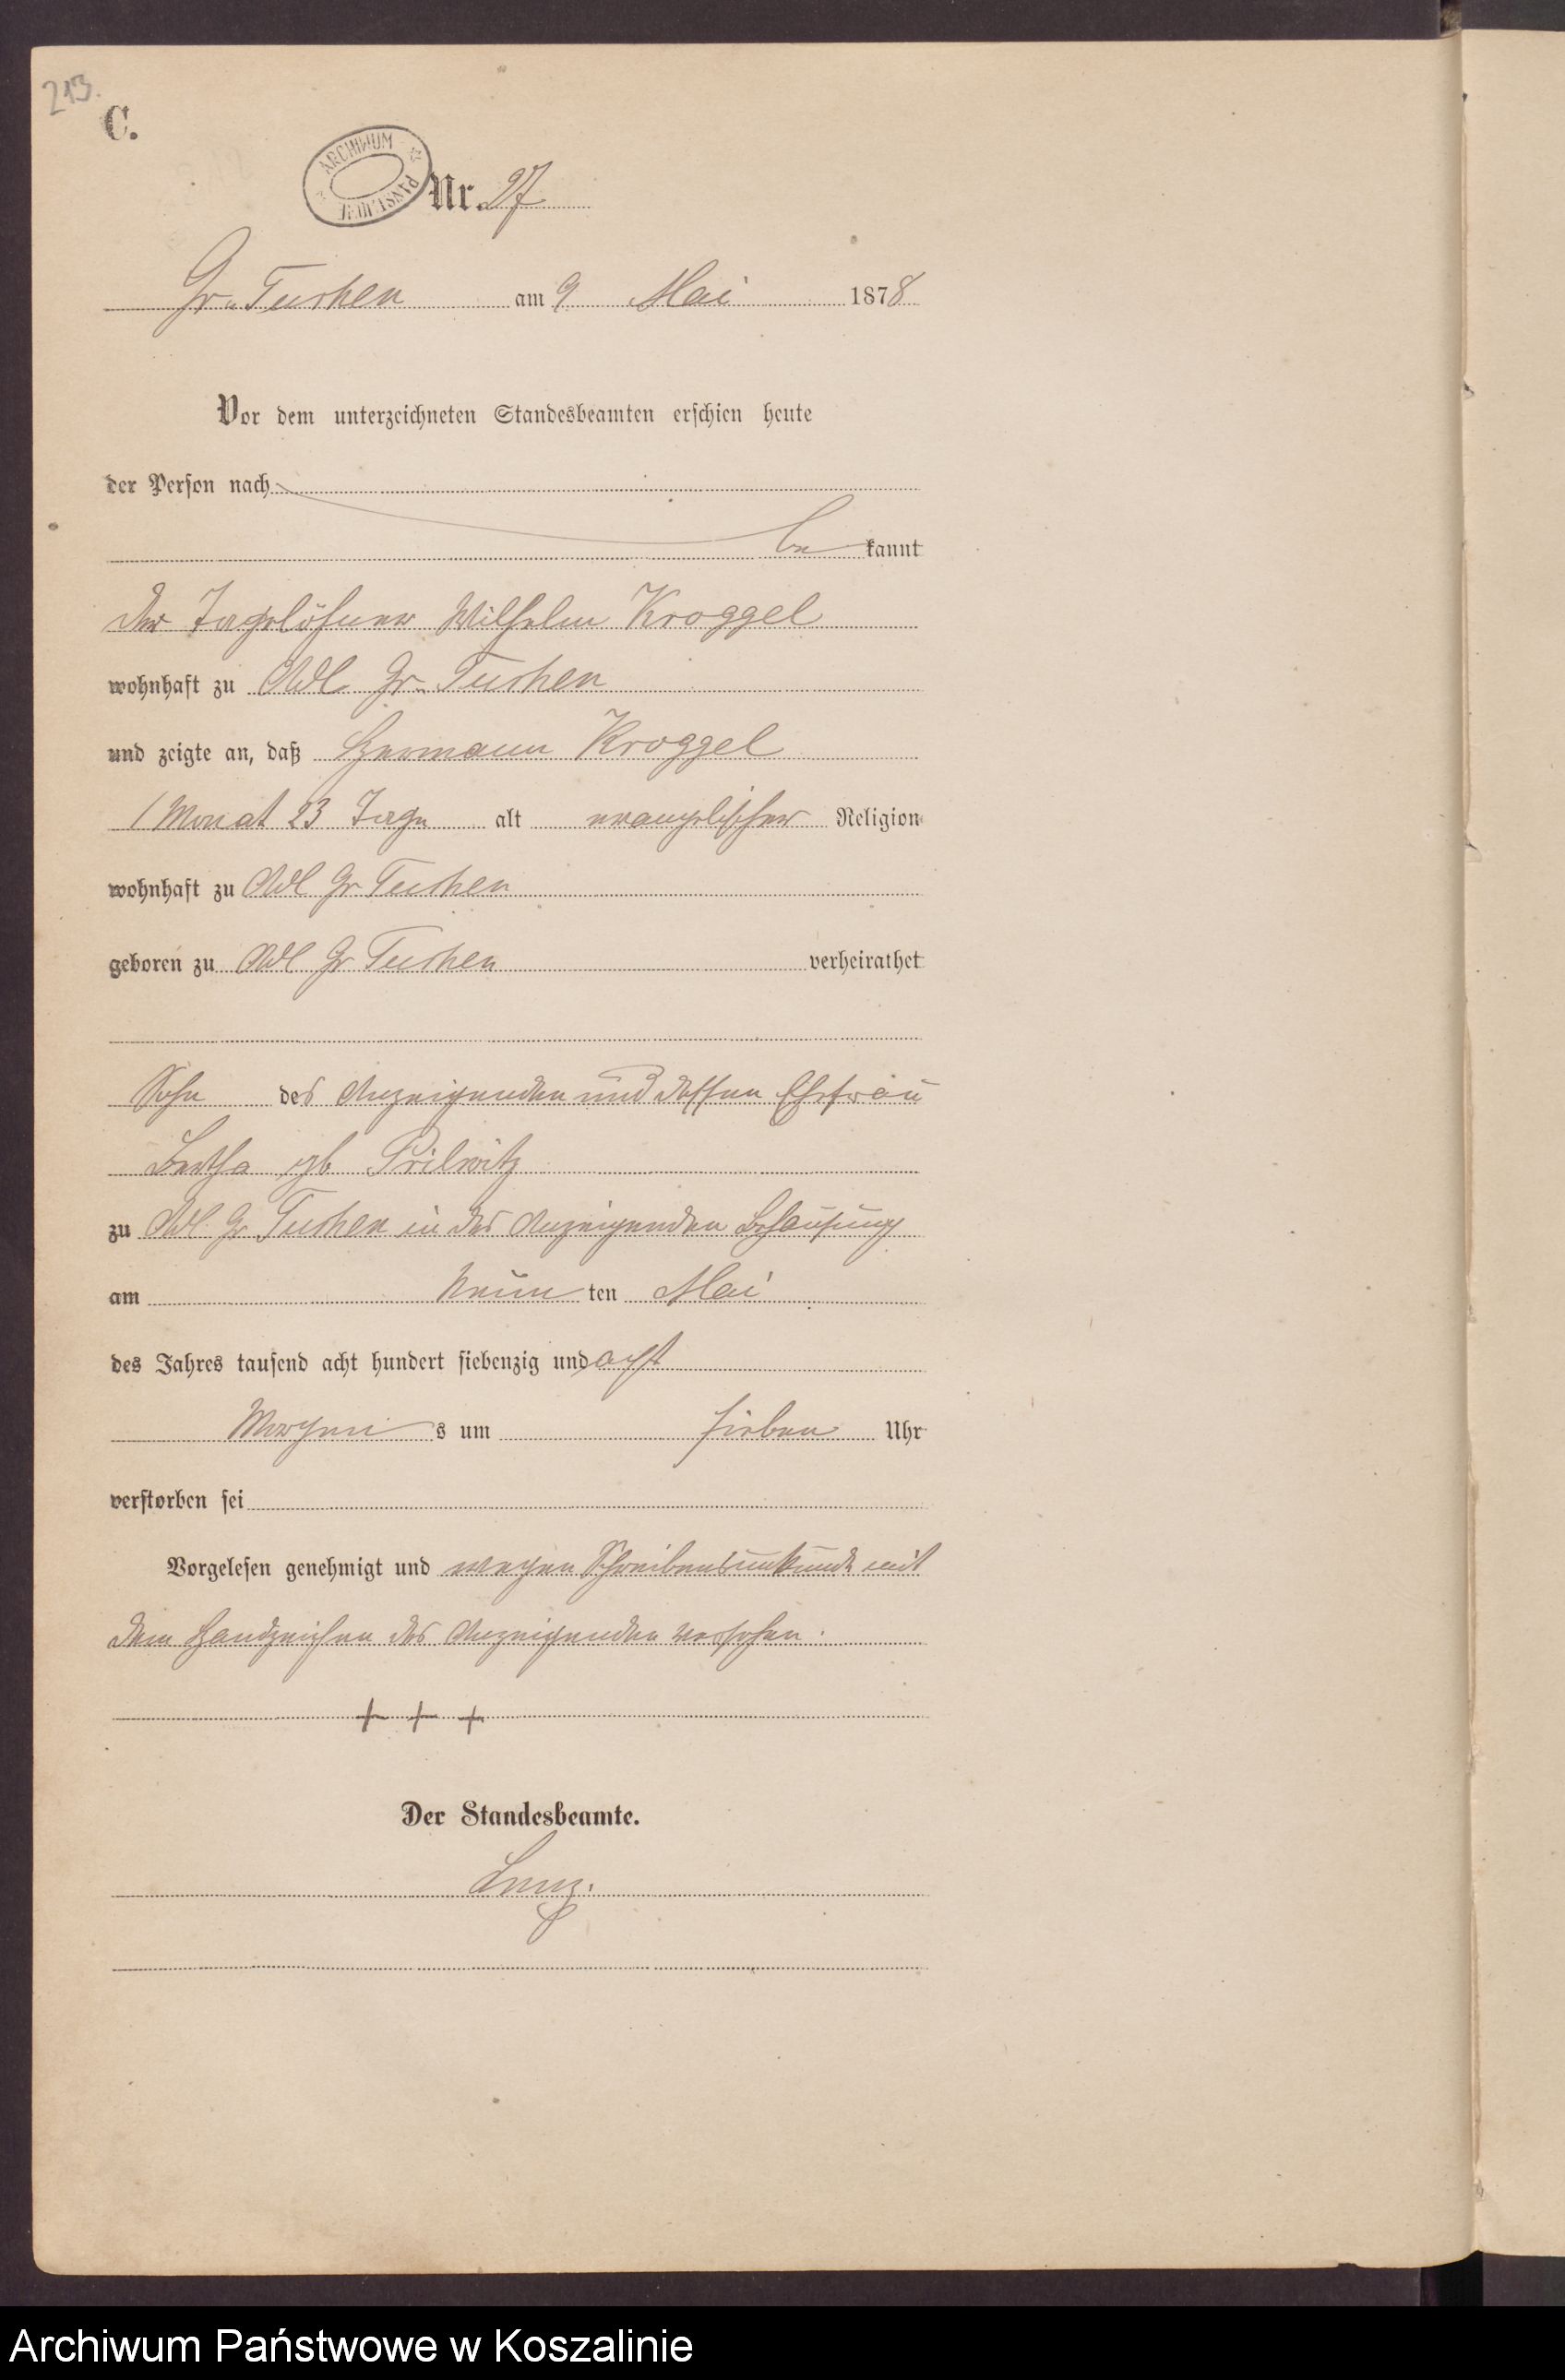 213.
C.
ARCHIWUM
Nr. 27
Gr. Tuchen am 9 Mai 1878
Vor dem unterzeichneten Standesbeamten erschien heute
der Person nach
be kannt
der Tagelöhner Wilhelm Kroggel
wohnhaft zu Adl. Gr. Tuchen
und zeigte an, daß Hermann Kroggel
1 Monat 23 Tage alt evangelischer Religion
wohnhaft zu Adl Gr Tuchen
geboren zu Adl Gr Tuchen verheirathet
Sohn des Anzeigenden und dessen Ehefrau
Bertha gb Prilwitz
zu Adl. Gr Tuchen in des Anzeigenden Behausung
am Neun ten Mai
des Jahres tausend acht hundert siebenzig und acht
Morgen s um sieben Uhr
verstorben sei
Vorgelesen genehmigt und wegen Schreibensunkunde mit
dem Handzeichen des Anzeigenden versehen.
+ + +
Der Standesbeamte.
Archiwum Państwowe w Koszalinie